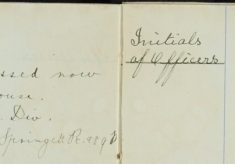 ssed now
ouse.
Div.
Springett R. 989
Initials
of Officers